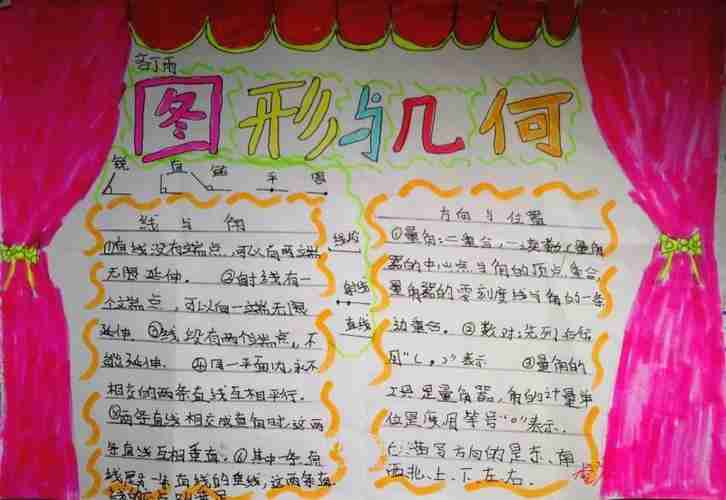 图形与几何
锐 直 钝 平 周
线与角
①直线没有端点,可以向两端
无限延伸。②射线有一
个端点,可以向一端无限
延伸。③线段有两个端点,不
能延伸。④同一平面内,永不
相交的两条直线互相平行。
⑤两条直线相交成直角时,这两
条直线互相垂直。⑥其中一条直
线是另一条直线的垂线,这两条直
线段
射线
直线
方向与位置
①量角:二重合,一读数(量角
器的中心点与角的顶点重合,
量角器的零刻度线与角的一条
边重合。②数对:先列后行
用“( , )”表示 ③量角的
工具是量角器,角的计量单
位是度用符号“°”表示.
方向的是东、南
西、北、上、下、左、右.